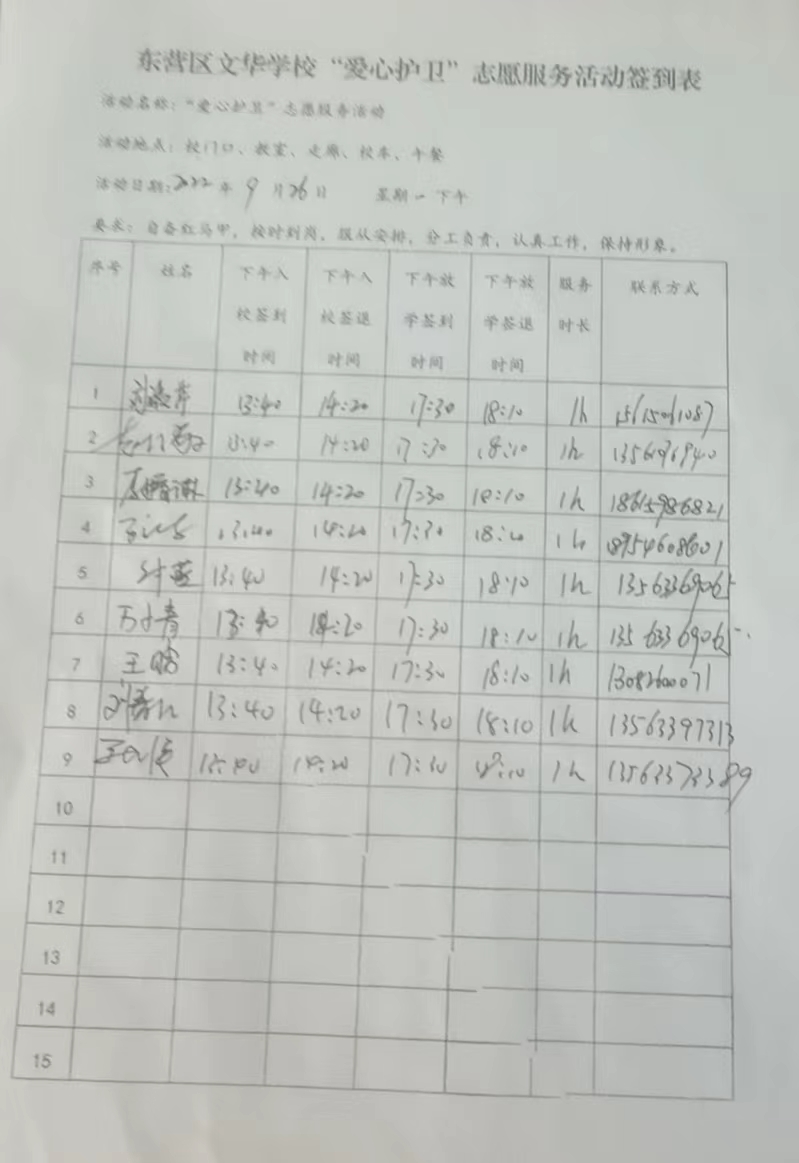 东营区文华学校“爱心护卫”志愿服务活动签到表
活动名称：“爱心护卫”志愿服务活动
活动地点：校门口、教室、走廊、校车、午餐
活动日期：2022年9月26日 星期一下午
要求：自备红马甲，按时到岗，服从安排，分工负责，认真工作，保持形象。
序号 姓名 下午入校签到时间 下午入校签退时间 下午放学签到时间 下午放学签退时间 服务时长 联系方式
1 13:40 14:20 17:30 18:10 1h
2 13:40 14:20 17:30 18:10 1h
3 13:40 14:20 17:30 18:10 1h 18615986821
4 13:40 14:20 17:30 18:10 1h 18954608601
5 13:40 14:20 17:30 18:10 1h 13563369065
6 13:40 14:20 17:30 18:10 1h 13563369065
7 13:40 14:20 17:30 18:10 1h 13082600071
8 13:40 14:20 17:30 18:10 1h 13563397313
9 13:40 14:20 17:30 18:10 1h 13563373389
10
11
12
13
14
15